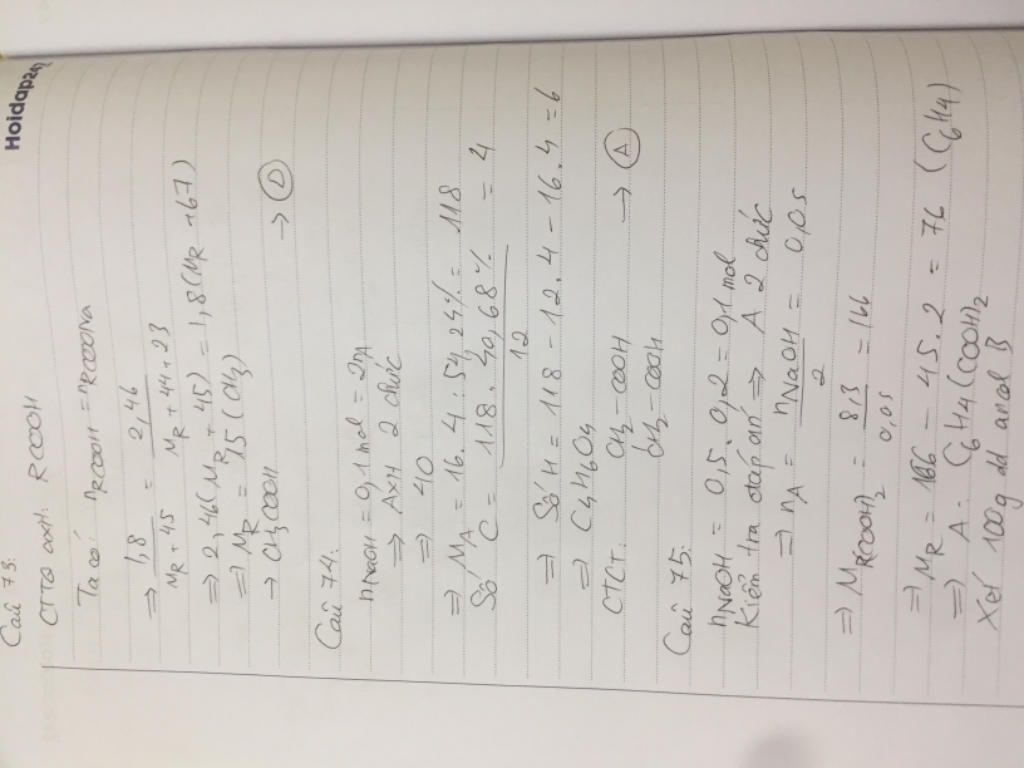 Hoidap247
Câu 73:
CTTQ axit: RCOOH
Ta có: nRCOOH = nRCOONa
=> 1,8 / MR + 45 = 2,46 / MR + 44 + 23
=> 2,46(MR + 45) = 1,8(MR + 67)
=> MR = 15 (CH3)
→ CH3COOH → D
Câu 74:
nNaOH = 0,1 mol = 2nA
=> Axit 2 chức
=> 4O
=> MA = 16.4 : 54,24% = 118
Số C = 118.40,68% / 12 = 4
=> Số H = 118 - 12.4 - 16.4 = 6
=> C4H6O4
CTCT: CH2-COOH → A
CH2-COOH
Câu 75:
nNaOH = 0,5.0,2 = 0,1 mol
Kiểm tra đáp án => A 2 chức
=> nA = nNaOH / 2 = 0,05
=> MR(COOH)2 = 8,3 / 0,05 = 166
=> MR = 166 - 45.2 = 76 (C6H4)
=> A: C6H4(COOH)2
Xét 100g dd ancol B